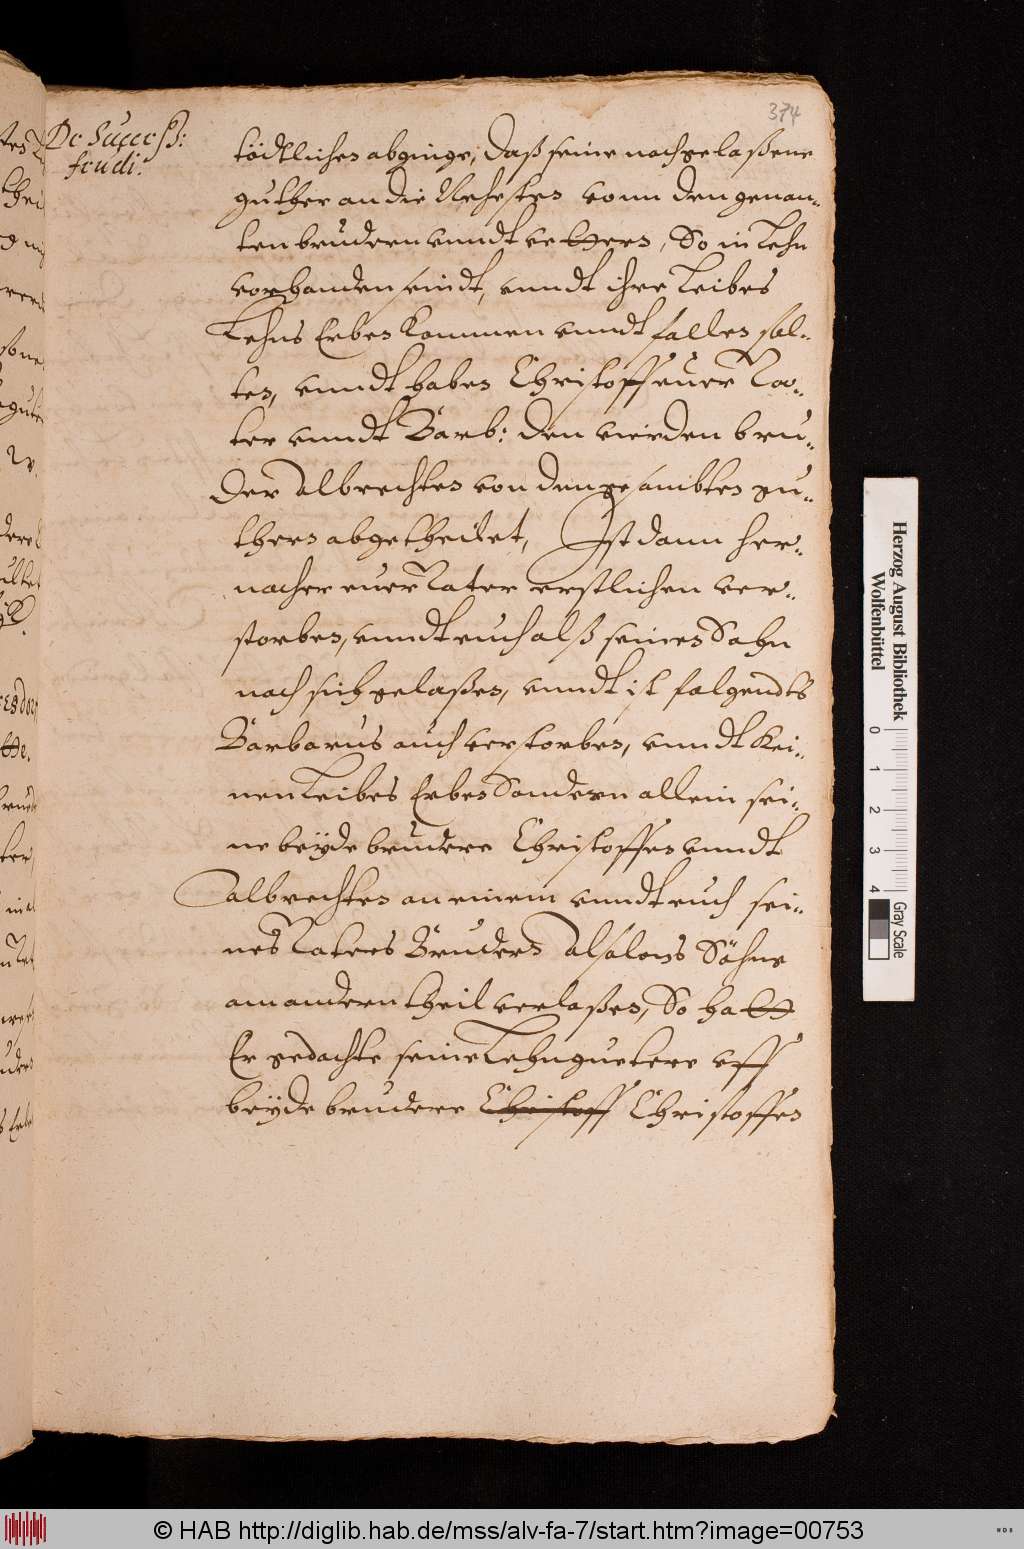 374
De Success:
feudi.
tödtlichen abginge, daß seine nachgelaßene
güther an die Nehesten vonn den genan-
ten brudern vnndt vettern, So in Lehn
vorhanden seindt, vnndt ihre Leibes
Lehns Erben kommen vnndt fallen sol-
ten, vnndt haben Christoff euer Va-
ter vnndt Barb: den vierden bru-
der Albrechten von den gesambten gu-
thern abgetheilet, Ist dann her-
nacher euer Vater erstlichen ver-
storben, vnndt euch alß seinen Sohn
nach sich gelaßen, vnndt ist folgendts
Barbarus auch verstorben, vnndt kei-
nen Leibes Erben Sondern allein sei-
ne beÿde brudere Christoffen vnndt
Albrechten an einem vnndt euch sei-
nes Vatern Brudern Absalons Söhne
am andern theil verlaßen, So hatt
Er gedachte seine Lehnguetere vff
beÿde brudere Christoff Christoffen
Herzog August Bibliothek
Wolfenbüttel
0 1 2 3 4
Gray Scale
© HAB http://diglib.hab.de/mss/alv-fa-7/start.htm?image=00753